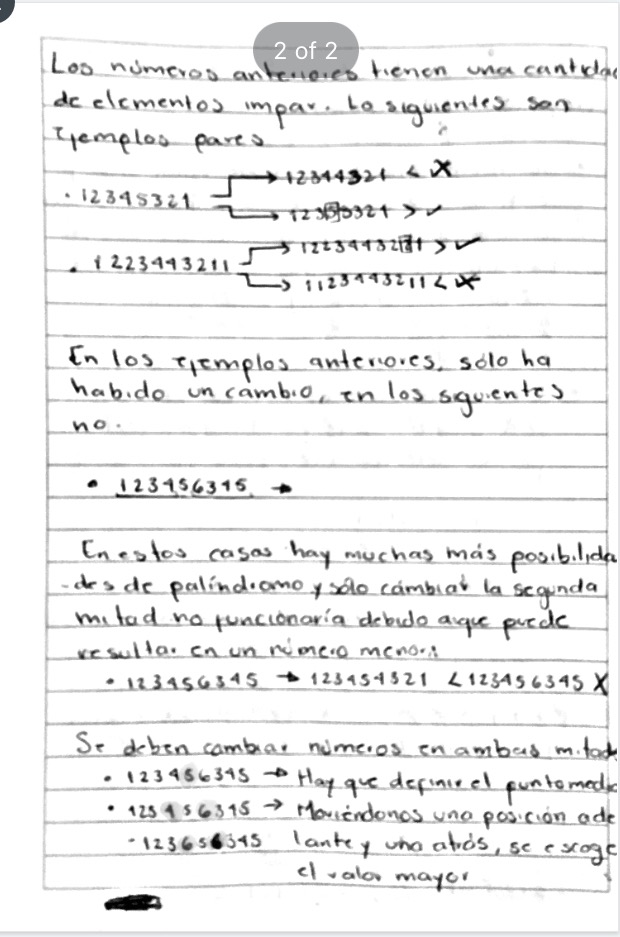 2 of 2
Los números anteriores tienen una cantidad
de elementos impar. Lo siguientes son
Ejemplos pares
. 12345321 → 12344321 < X
→ 12355321 > ✓
. 1223443211 → 1223443221 > ✓
→ 1123443211 < X
En los ejemplos anteriores, sólo ha
habido un cambio, en los siguientes
no.
• 123456345 →
En estos casos hay muchas más posibilida
-des de palíndromo y sólo cambiar la segunda
mitad no funcionaría debido a que puede
resultar en un número menor:
• 123456345 → 123454321 < 123456345 X
Se deben cambiar números en ambas mitad
• 123456345 → Hay que definir el punto medio
• 123456345 → Moviéndonos una posición ade
- 123656345 lante y una atrás, se escoge
el valor mayor